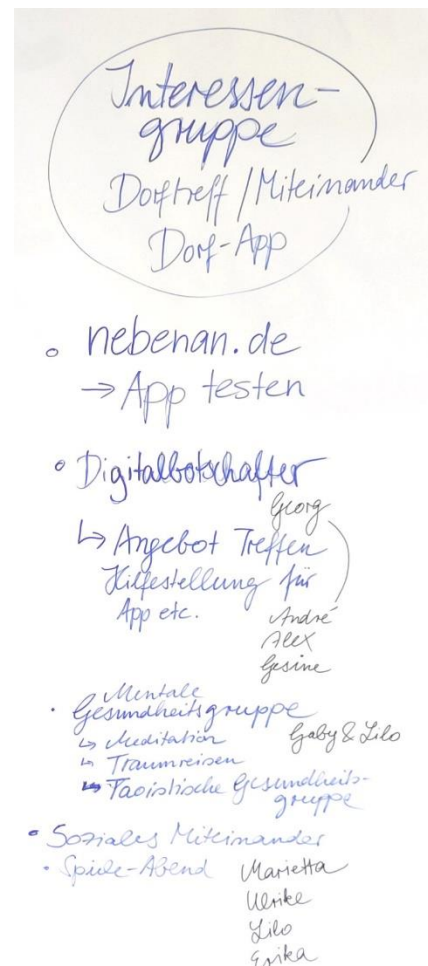 Interessen-
gruppe
Dorftreff / Miteinander
Dorf-App
nebenan.de
→ App testen
Digitalbotschafter
Georg
↳ Angebot Treffen
Hilfestellung für
App etc.
André
Alex
Gesine
Mentale
Gesundheitsgruppe
Gaby & Lilo
↳ Meditation
↳ Traumreisen
↳ Taoistische Gesundheits-
gruppe
Soziales Miteinander
Spiele-Abend
Marietta
Ulrike
Lilo
Erika